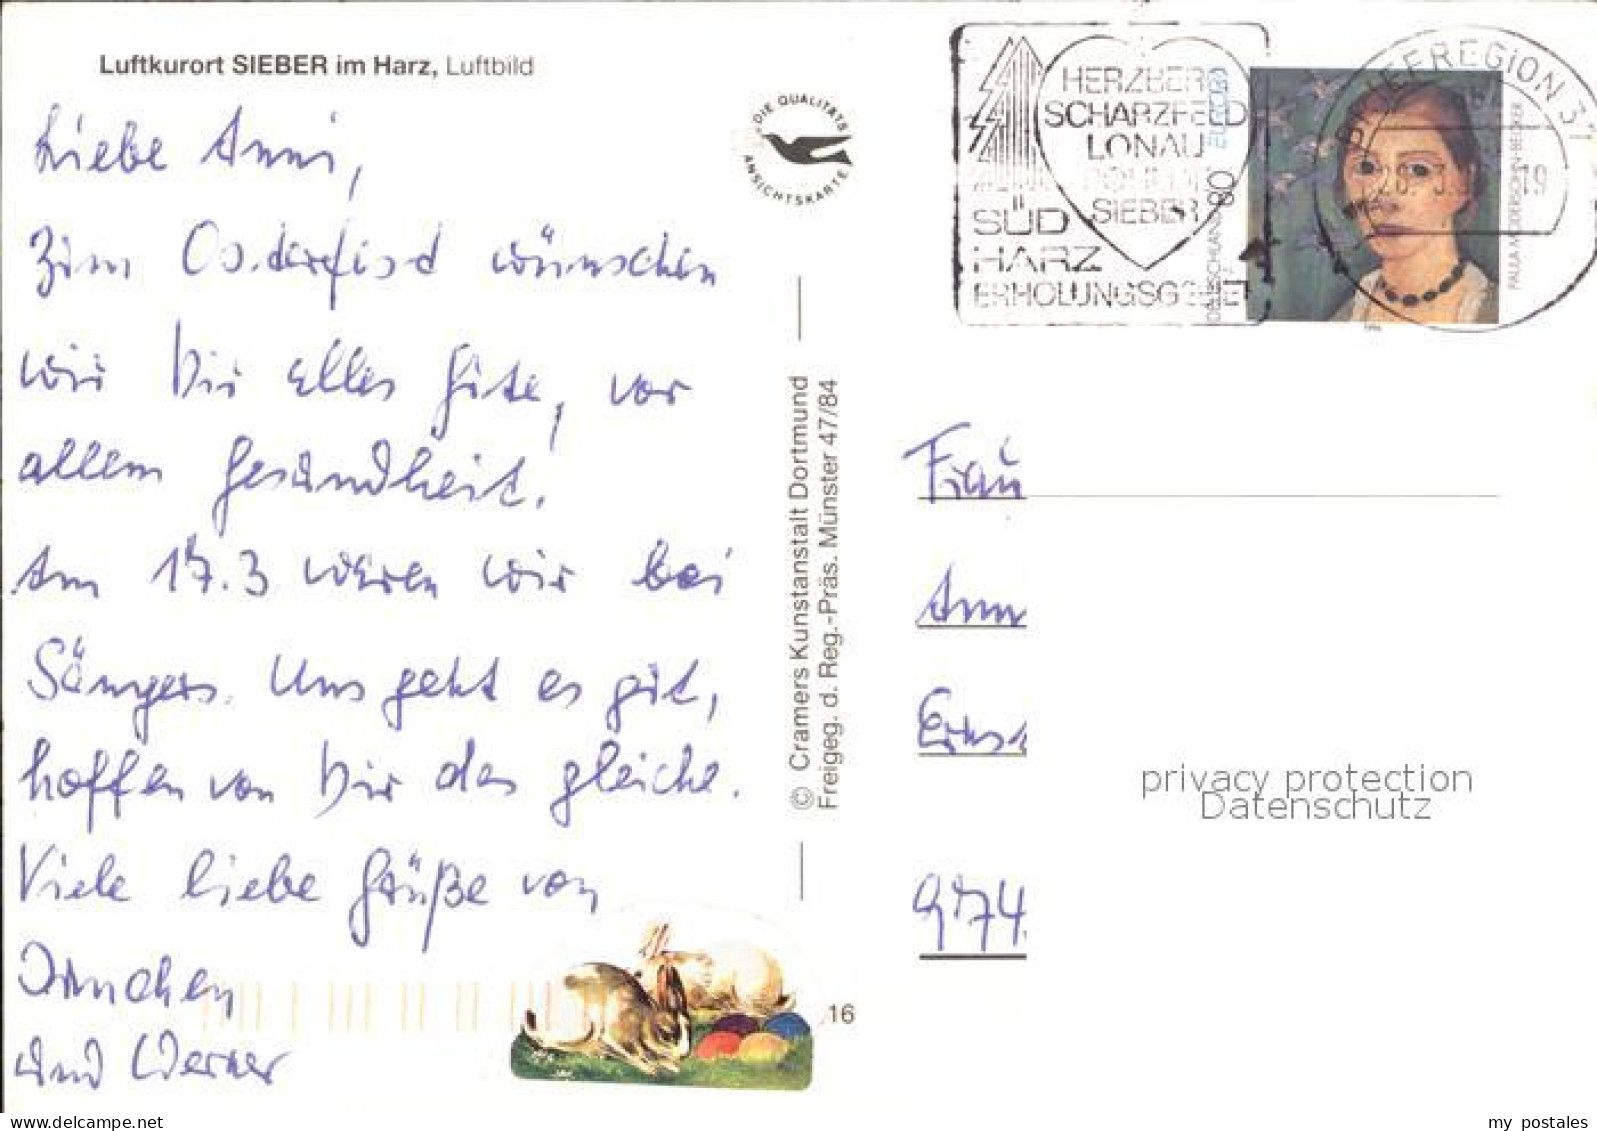 Luftkurort SIEBER im Harz, Luftbild
Liebe Anni,
Zum Osterfest wünschen
wir Dir alles Gute, vor
allem Gesundheit.
Am 17.3 waren wir bei
Sängers. Uns geht es gut,
hoffen von Dir das gleiche.
Viele liebe Grüße von
Ännchen
und Werner
DIE QUALITÄTS
ANSICHTSKARTE
© Cramers Kunstanstalt Dortmund
Freigeg. d. Reg.-Präs. Münster 47/84
16
HERZBERG
SCHARZFELD
LONAU
SIEBER
SÜD
HARZ
ERHOLUNGSGEBIET
DEUTSCHLAND 80
EUROPA
PAULA MODERSOHN-BECKER
BRIEFREGION 37
19
Frau
Ann
Erns
974
privacy protection
Datenschutz
www.delcampe.net
my_postales